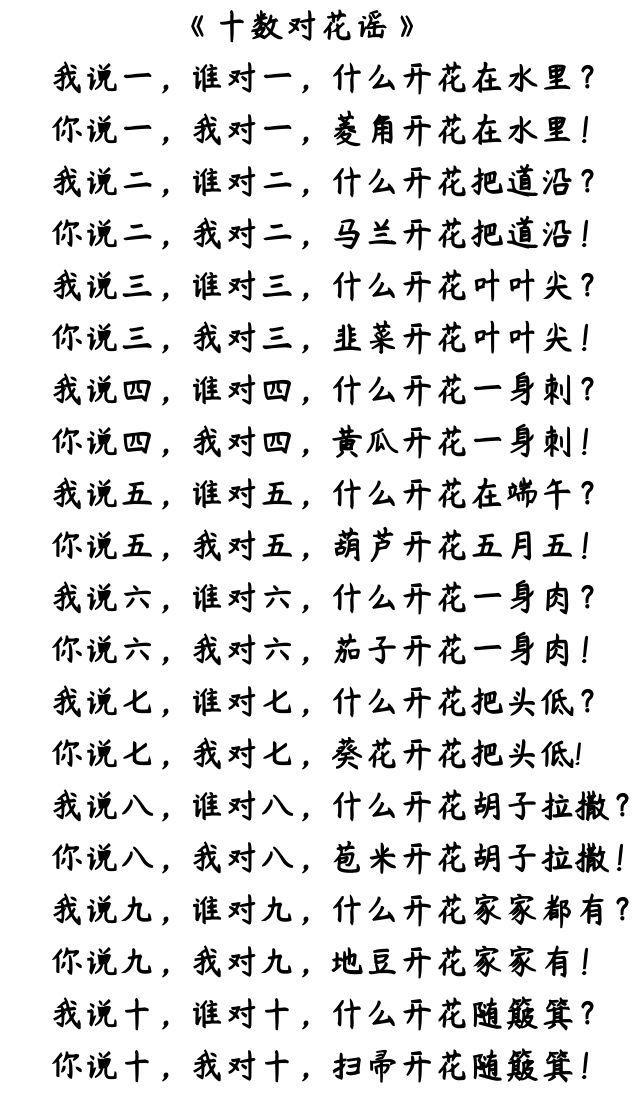 《十数对花谣》
我说一，谁对一，什么开花在水里？
你说一，我对一，菱角开花在水里！
我说二，谁对二，什么开花把道沿？
你说二，我对二，马兰开花把道沿！
我说三，谁对三，什么开花叶叶尖？
你说三，我对三，韭菜开花叶叶尖！
我说四，谁对四，什么开花一身刺？
你说四，我对四，黄瓜开花一身刺！
我说五，谁对五，什么开花在端午？
你说五，我对五，葫芦开花五月五！
我说六，谁对六，什么开花一身肉？
你说六，我对六，茄子开花一身肉！
我说七，谁对七，什么开花把头低？
你说七，我对七，葵花开花把头低!
我说八，谁对八，什么开花胡子拉撒？
你说八，我对八，苞米开花胡子拉撒！
我说九，谁对九，什么开花家家都有？
你说九，我对九，地豆开花家家有！
我说十，谁对十，什么开花随簸箕？
你说十，我对十，扫帚开花随簸箕！